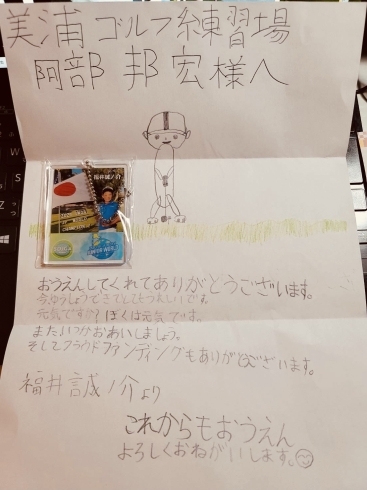 美浦ゴルフ練習場
阿部邦宏様へ
おうえんしてくれてありがとうございます。
今ゆうしょうできてとてもうれしいです。
元気ですか?ぼくは元気です。
またいつかおあいしましょう。
そしてクラウドファンディングもありがとうございます。
福井誠ノ介より
これからもおうえん
よろしくおねがいします。